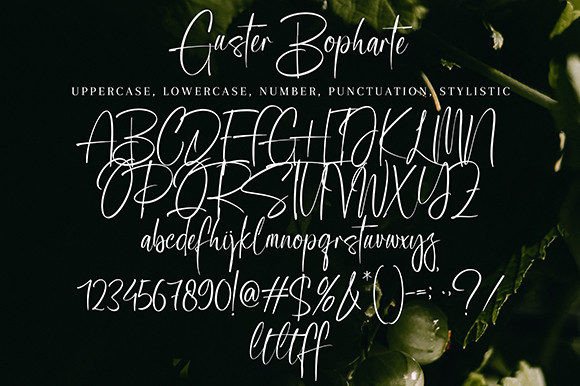 Guster Bopharte
UPPERCASE, LOWERCASE, NUMBER, PUNCTUATION, STYLISTIC
ABCDEFGHIJKLMN
OPQRSTUVWXYZ
abcdefghijklmnopqrstuvwxyz
1234567890!@#$%&*()-=;:.,?/
lttltff